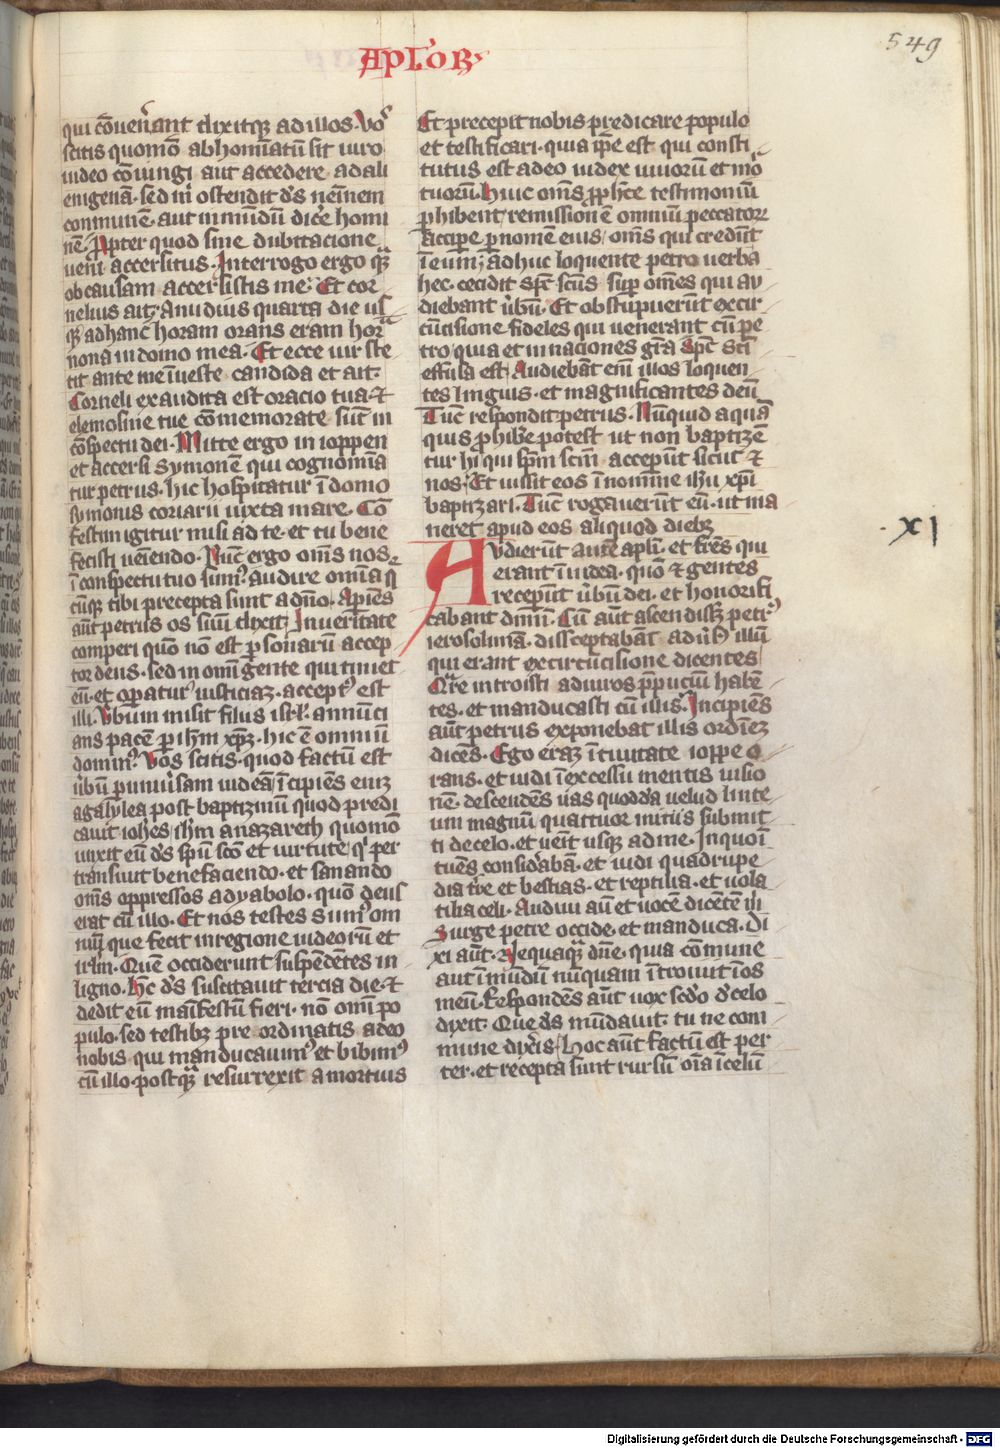 Aptor̄
549
qui cōuen̄ant dixitq; ad illos. Vos
scitis quomō abhominatū sit uiro
iudeo cōiungi aut accedere ad ali
enigenā. sed m̄ ostendit ds̄ neminem
communē. aut inmūdū dicē homi
nē. Ꝓpter quod sine dubitacione
ueni accersitus. Interrogo ergo qm̄
ob causam accersistis me. Et cor
nelius ait. A nudius quarta die us
q; ad hanc horam orans eram hor̄
nona in domo mea. Et ecce uir ste
tit ante me ī ueste candida et ait.
Corneli exaudita est oracio tua ⁊
elemosine tue cōmemorate sūt in
cōspectu dei. Mitte ergo in ioppen
et accersi Symonē qui cognomina
tur petrus. hic hospitatur ī domo
symonis coriarii iuxta mare. Con
festim igitur misi ad te. et tu bene
fecisti ueniendo. Nūc ergo om̄s nos
ī conspectu tuo sumꝰ audire omīa q̄
cūq; tibi precepta sunt a dn̄o. Apiēs
aūt petrus os suū dixit. In ueritate
comperi quō non est ꝑsonarū accep
tor deus. sed in om̄i gente qui timet
eū. et oꝑaturꝰ iusticiaꝫ. acceptꝰ est
illi. Vbum misit filiis isrl̄. annūci
ans pacē ꝑ ih̄m xp̄ꝫ. hic ē omniū
dominꝰ. Vos scitis. quod factū est
ūbū ꝑ uniūsam iudeā. īcipiēs enīꝫ
a galylea post baptizmū quod predi
cauit ioh̄es ih̄m a nazareth quomō
unxit eū ds̄ sp̄u sc̄o et uirtute. qͥ per
transiuit benefaciendo. et sanando
om̄s oppressos a dyabolo. quō deus
erat cū illo. Et nos testes Sumꝰ om
niū que fecit in regione iudeorū et
irl̄m. Quē occiderunt suspēdētes in
ligno. Hc̄ ds̄ suscitauit tercia die. ⁊
dedit eū manifestū fieri. nō om̄i po
pulo. sed testibꝫ pre ordinatis a deo
nobis qui manducauimꝰ et bibimꝰ
cū illo. postq̄ꝫ resurrexit a mortuis
Et precepit nobis predicare populo
et testificari. quia ip̄e est qui consti
tutus est a deo iudex uiuorū et mo
tuorū. Huic om̄s ꝓphete testimoniū
ꝑhibent remissionē omniū peccatorꝝ
accipe ꝑ nomen eius. om̄s qui credūt
ī eum; adhuc loquente petro uerba
hec. cecidit spc̄ sc̄us suꝑ om̄es qui au
diebant ūbū. Et obstupuerūt ex cir
cūcisione fideles qui uenerant cū pe
tro. quia et in naciones gr̄a Spc̄ Sc̄i
effusa est. Audiebāt enī illos loquen
tes linguis. et magnificantes deū
Tūc respondit petrus. Nūquid aquā
quis ꝓhibe potest ut non baptizē
tur hi qui sp̄m sc̄m acceperūt sicut ⁊
nos. Et iussit eos ī nomine ih̄u xp̄i
baptizari. Tūc rogauerūt eū. ut ma
neret apud eos aliquod diebꝫ
XI
Audierūt autē apl̄i. et fr̄es qui
erant ī iudea. quō ⁊ gentes
receperūt ūbū dei. et honorifi
cabant dn̄m. Cū aūt ascendissꝫ petrꝰ
ierosolimā. disceptabāt aduˀsꝰ illū
qui erant ex circūcisione dicentes
Qͣre introisti ad uiros p̄puciū habē
tes. et manducasti cū illis. Incipiēs
aūt petrus exponebat illis ordinēꝫ
dicēs. Ego eraꝫ ī ciuitate ioppe o
rans. et uidi ī excessu mentis uisio
nē. descendēs uas quoddā uelud linte
um magnū quattuor initiis submit
ti de celo. et uenit usq; ad me. In quo ī
tuēs considerabā. et uidi quadrupe
dia tr̄e et bestias. et reptilia. et uola
tilia celi. Audiui aū et uocē dicētē m̄
Surge petre occide. et manduca. Di
xi aūt. Nequaq̄ꝫ dn̄e. quia cōmune
aut ī mūdū nūquam ītroiuit ī os
meū. Respondēs aūt uox sc̄do d̄ celo
dixit. Que ds̄ mūdauit. tu ne com
mune dix̄is. Hoc aūt factū est per
ter. et recepta sunt rursū oīa ī celū
Digitalisierung gefördert durch die Deutsche Forschungsgemeinschaft - DFG